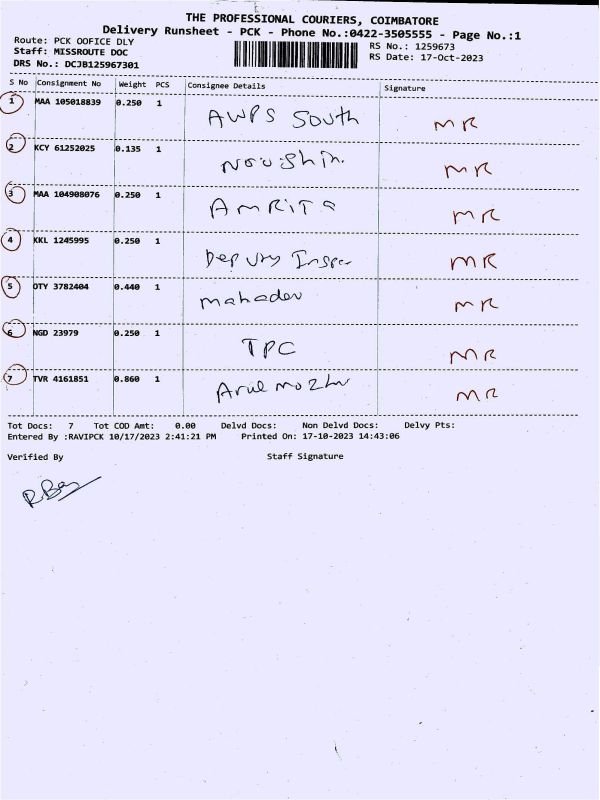 THE PROFESSIONAL COURIERS, COIMBATORE
Delivery Runsheet - PCK - Phone No.:0422-3505555 - Page No.:1
Route: PCK OOFICE DLY
RS No.: 1259673
Staff: MISSROUTE DOC
RS Date: 17-Oct-2023
DRS No.: DCJB125967301
S No Consignment No Weight PCS Consignee Details Signature
1 MAA 105018839 0.250 1 AWPS South MR
2 KCY 61252025 0.135 1 Noushin. MR
3 MAA 104908076 0.250 1 AMRITA MR
4 KKL 1245995 0.250 1 Deputy Inspe MR
5 OTY 3782404 0.440 1 mahadev MR
6 NGD 23979 0.250 1 TPC MR
7 TVR 4161851 0.860 1 Arul mozhi MR
Tot Docs: 7 Tot COD Amt: 0.00 Delvd Docs: Non Delvd Docs: Delvy Pts:
Entered By :RAVIPCK 10/17/2023 2:41:21 PM Printed On: 17-10-2023 14:43:06
Verified By Staff Signature